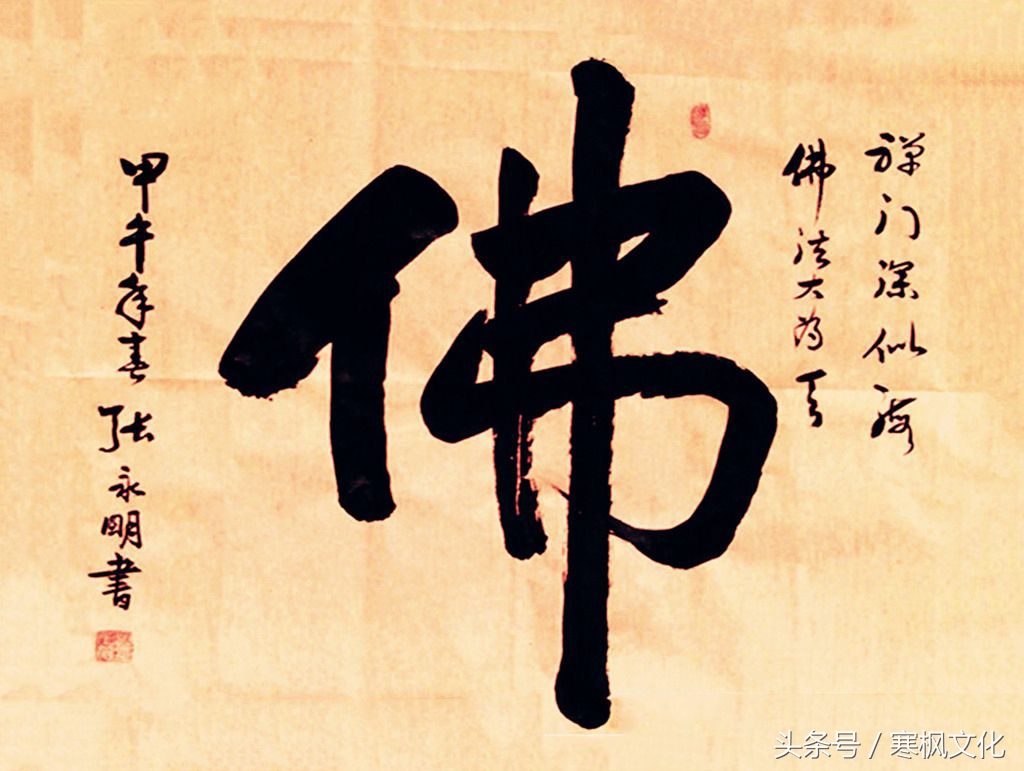 禅门深似海
佛法大为天
佛
甲午年春张永明書
头条号 / 寒枫文化